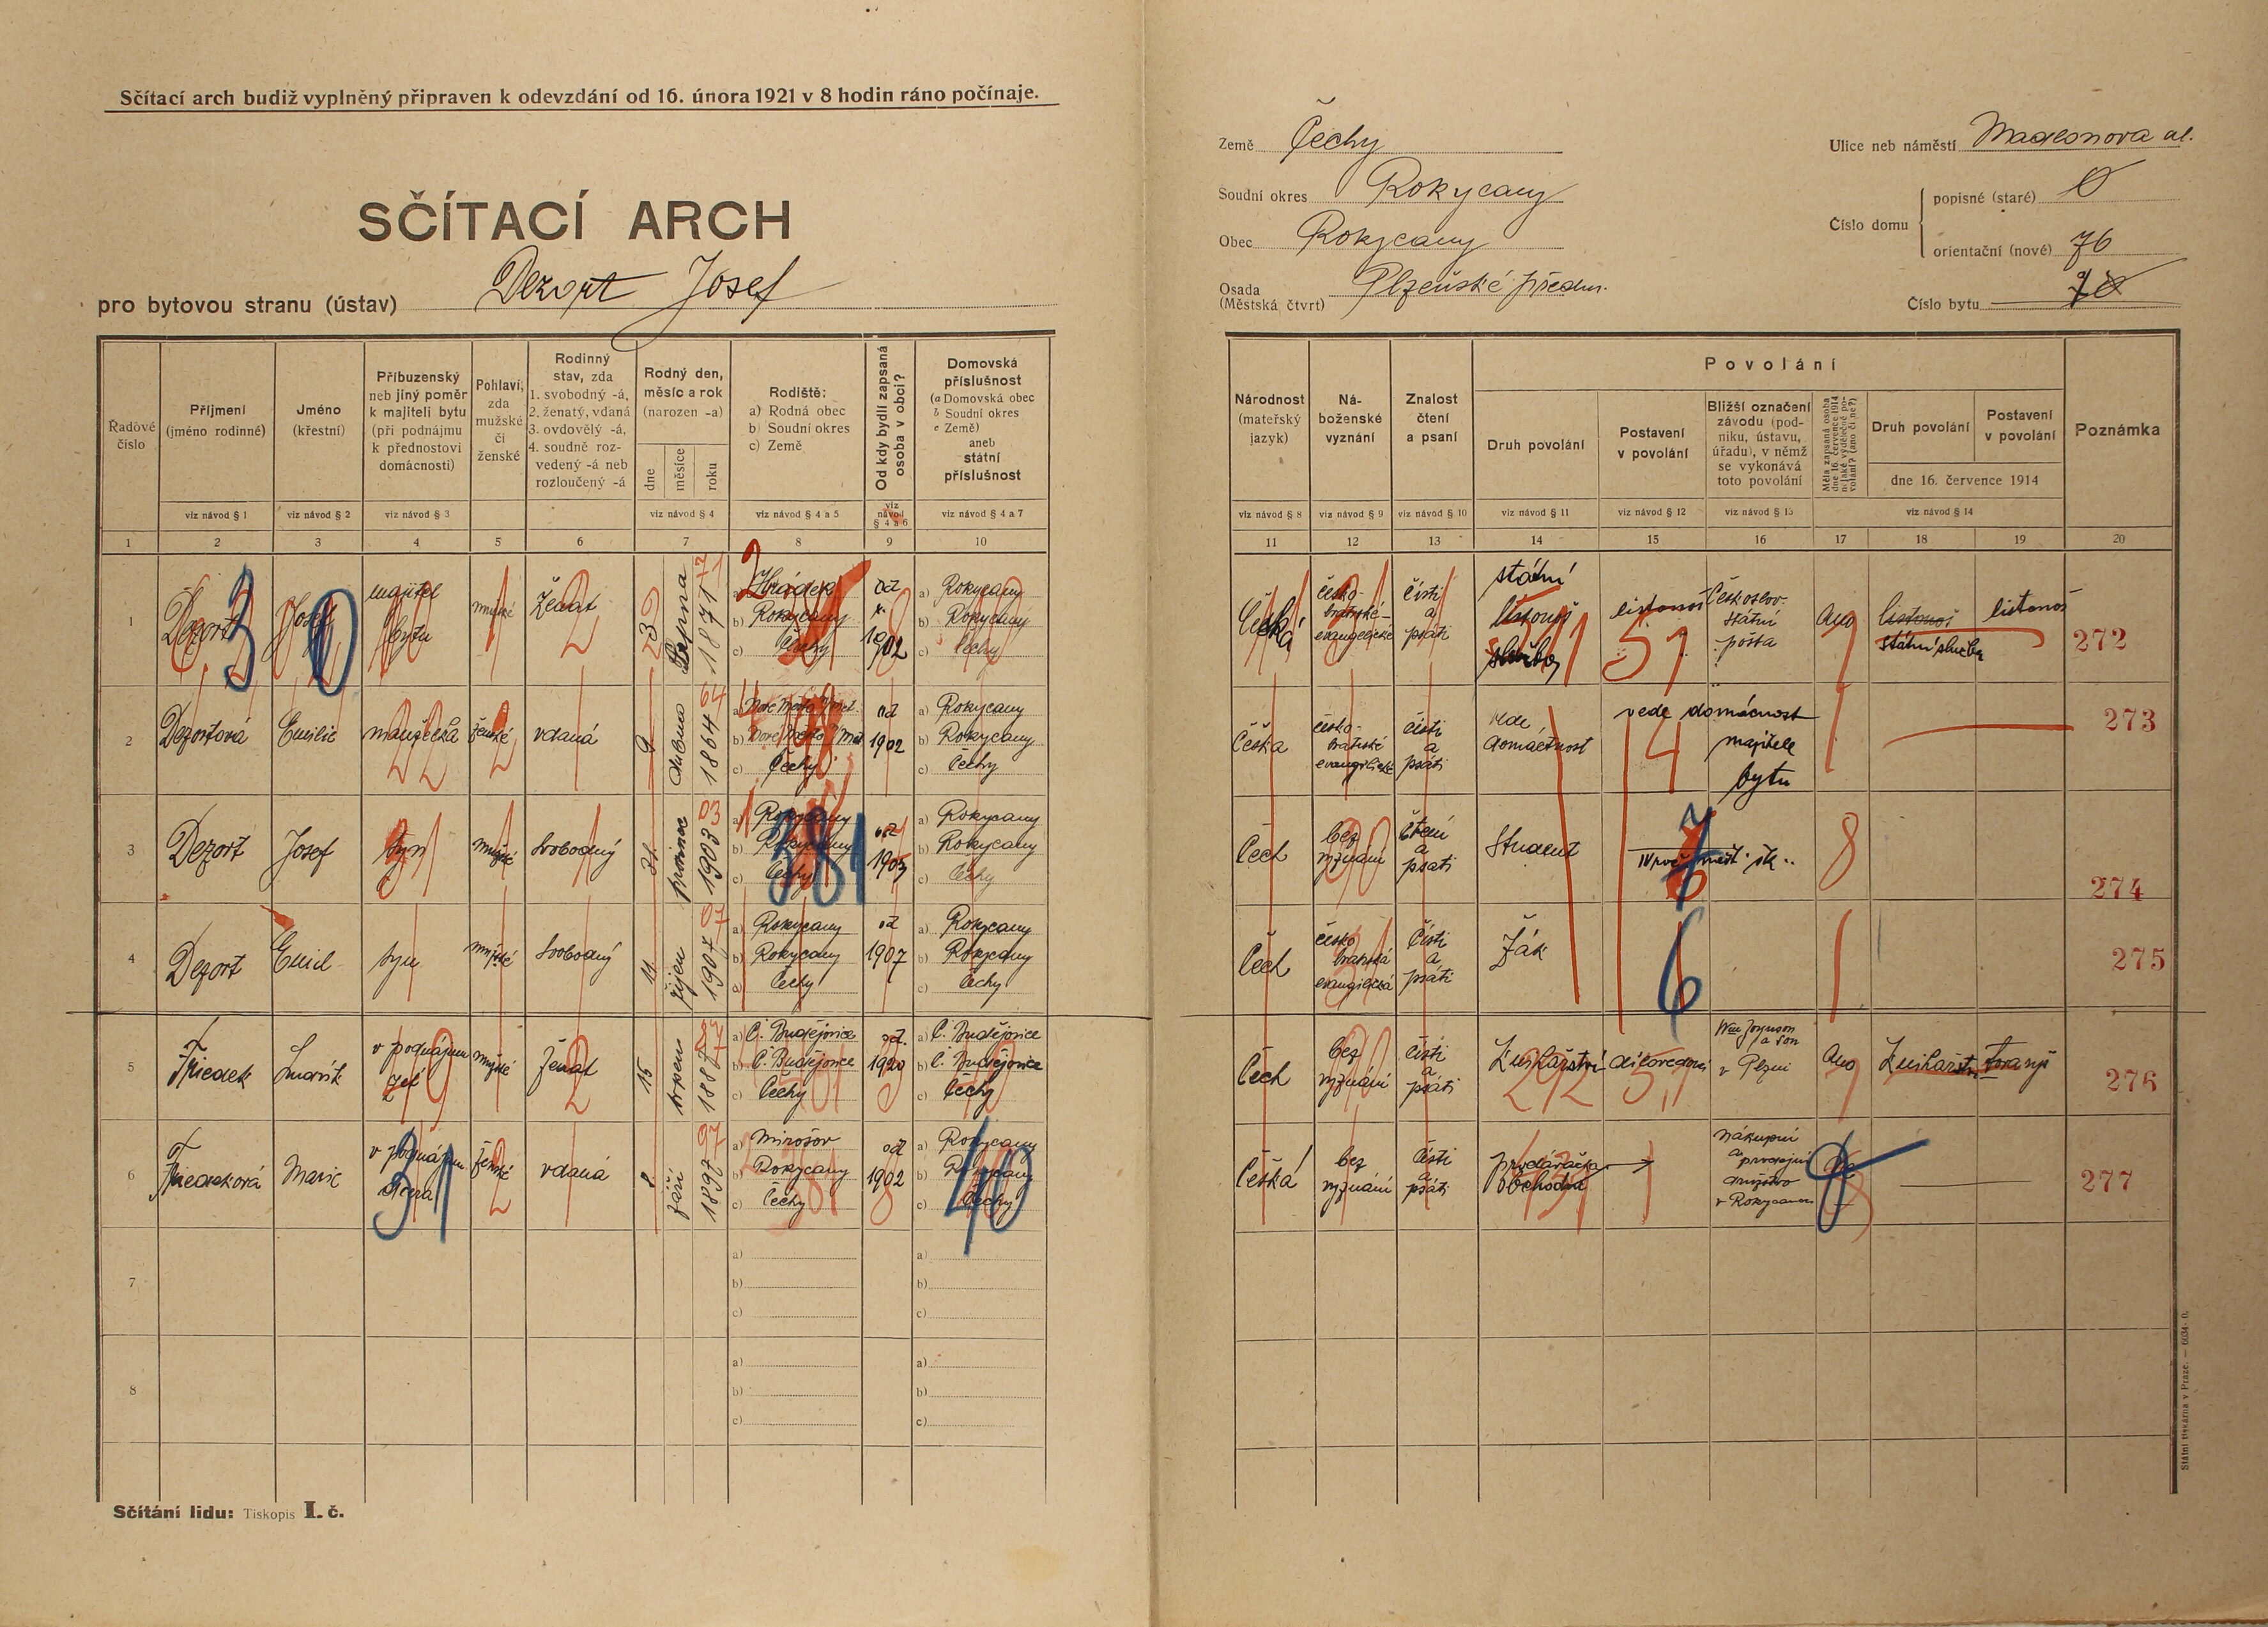 Sčítací arch budiž vyplněný připraven k odevzdání od 16. února 1921 v 8 hodin ráno počínaje.
SČÍTACÍ ARCH
pro bytovou stranu (ústav) Dezort Josef
Země Čechy
Soudní okres Rokycany
Obec Rokycany
Osada
(Městská čtvrt) Plzeňské předm.
Ulice neb náměstí
Číslo domu
popisné (staré) 0
orientační (nové) 76
Číslo bytu
Řadové
číslo
Příjmení
(jméno rodinné)
Jméno
(křestní)
Příbuzenský
neb jiný poměr
k majiteli bytu
(při podnájmu
k přednostovi
domácnosti)
Pohlaví,
zda
mužské
či
ženské
Rodinný
stav, zda
1. svobodný -á,
2. ženatý, vdaná
3. ovdovělý -á,
4. soudně roz-
vedený -á neb
rozloučený -á
Rodný den,
měsíc a rok
(narozen -a)
dne
měsíce
roku
Rodiště:
a) Rodná obec
b) Soudní okres
c) Země
Od kdy bydlí zapsaná
osoba v obci?
Domovská
příslušnost
(a Domovská obec
b Soudní okres
c Země)
aneb
státní
příslušnost
Národnost
(mateřský
jazyk)
Ná-
boženské
vyznání
Znalost
čtení
a psaní
Povolání
Druh povolání
Postavení
v povolání
Bližší označení
závodu (pod-
niku, ústavu,
úřadu), v němž
se vykonává
toto povolání
Měla zapsaná osoba
dne 16. července 1914
nějaké výdělečné po-
volání? (ano či ne?)
Druh povolání
Postavení
v povolání
dne 16. července 1914
Poznámka
viz návod § 1
viz návod § 2
viz návod § 3
viz návod § 4
viz návod § 4 a 5
viz
návod
§ 4 a 6
viz návod § 4 a 7
viz návod § 8
viz návod § 9
viz návod § 10
viz návod § 11
viz návod § 12
viz návod § 13
viz návod § 14
1 2 3 4 5 6 7 8 9 10
11 12 13 14 15 16 17 18 19 20
1 Dezort Josef majitel bytu mužské ženat 23 srpna 1871 71
a) Hrádek
b) Rokycany
c) Čechy
od
1902
a) Rokycany
b) Rokycany
c) Čechy
Česká
česko-
bratrské-
evangelické
čísti
a
psáti
státní
listonoš
služba
listonoš
51
Českoslov.
státní
pošta
Ano
listonoš
státní služba
listonoš
272
2 Dezortová Emilie manželka ženské vdaná 9 dubna 1864 64
a) Nové Město / Met.
b) Nové Město / Met
c) Čechy
od
1902
a) Rokycany
b) Rokycany
c) Čechy
Česká
česko-
bratrské
evangelické
čísti
a
psáti
vede
domácnost
vede domácnost
majitele
bytu
4
273
3 Dezort Josef syn mužské svobodný 31. prosince 1903 03
a) Rokycany
b) Rokycany
c) Čechy
381
od
1903
a) Rokycany
b) Rokycany
c) Čechy
Čech
bez
vyznání
čtení
a
psáti
Student
8
274
4 Dezort Emil syn mužské svobodný 11. říjen 1907 07
a) Rokycany
b) Rokycany
c) Čechy
od
1907
a) Rokycany
b) Rokycany
c) Čechy
Čech
česko
bratrská
evangelická
Čísti
a
psáti
Žák
6
275
5 v podnájmu zeť mužské ženat 15 srpen 1887 87
a) Č. Budějovice
b) Č. Budějovice
c) Čechy
od.
1920
a) Č. Budějovice
b) Č. Budějovice
c) Čechy
Čech
bez
vyznání
čísti
a
psáti
v Plzni
Ano
276
6 Marie v podnájmu dcera ženské vdaná 8 září 1897 97
31
a) Mirošov
b) Rokycany
c) Čechy
od
1902
a) Rokycany
b) Rokycany
c) Čechy
40
Česká
bez
vyznání
čísti
a
psáti
prodavačka
obchodní
nákupní
a prodejní
družstvo
v Rokycanech
277
7
a)
b)
c)
a)
b)
c)
8
a)
b)
c)
a)
b)
c)
Sčítání lidu: Tiskopis I. č.
Státní tiskárna v Praze. — 6034-0.